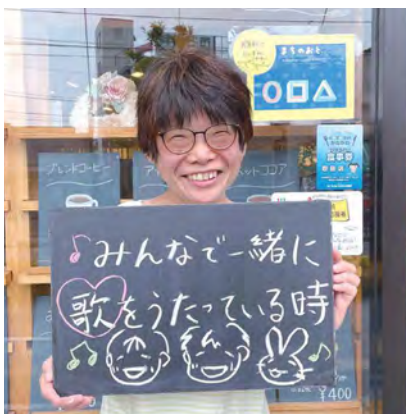 まちのおと
ブレンドコーヒー
ココア
♪みんなで一緒に
歌をうたっている時
¥400